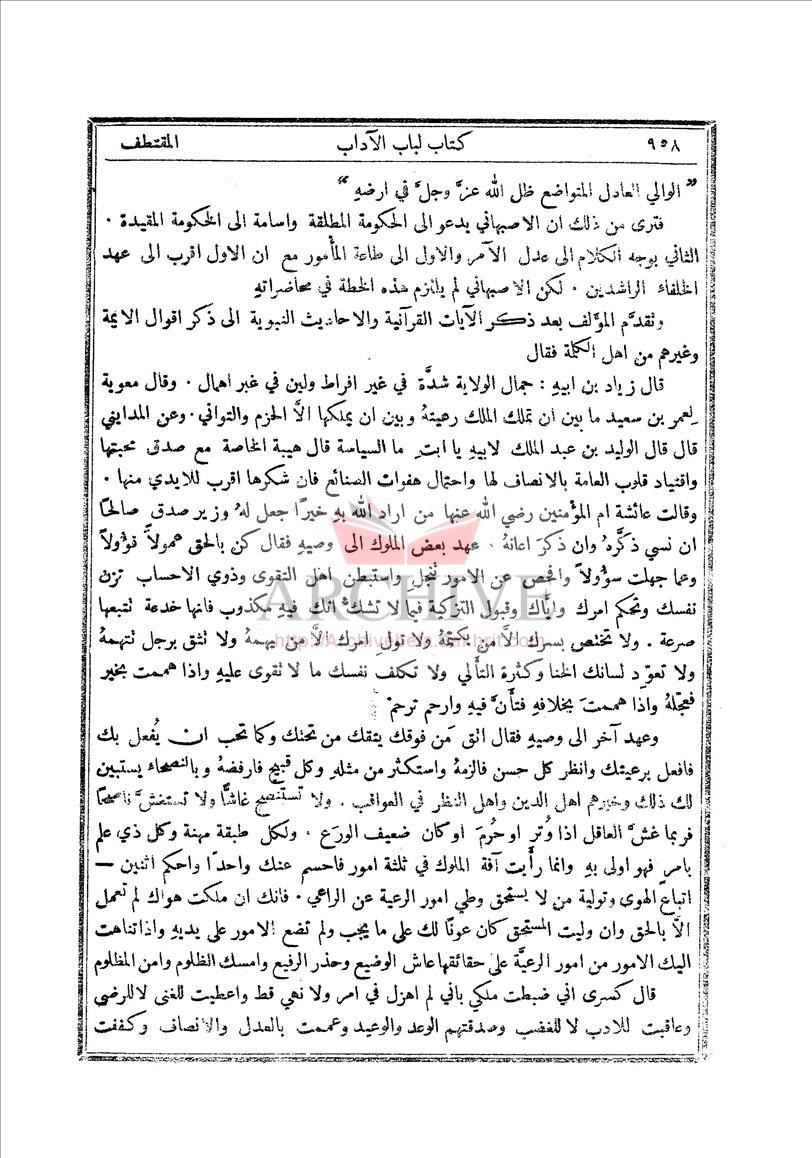 ٩٥٨ كتاب لباب الآداب المقتطف
" الوالي العادل المتواضع ظل الله عزَّ وجلَّ في ارضهِ "
فترى من ذلك ان الاصبهاني يدعو الى الحكومة المطلقة واسامة الى الحكومة المقيدة .
الثاني يوجه الكلام الى عدل الآمر والاول الى طاعة المأمور مع ان الاول اقرب الى عهد
الخلفاء الراشدين . لكن الاصبهاني لم يلتزم هذه الخطة في محاضراتهِ
وتقدَّم المؤلف بعد ذكر الآيات القرآنية والاحاديث النبوية الى ذكر اقوال الايمة
وغيرهم من اهل الكلمة فقال
قال زياد بن ابيهِ : جمال الولاية شدَّة في غير افراط ولين في غير اهمال . وقال معوية
لعمر بن سعيد ما بين ان تملك الملك رعيتهُ وبين ان يملكها الاَّ الحزم والتواني. وعن المدايني
قال قال الوليد بن عبد الملك لابيهِ يا ابتِ ما السياسة قال هيبة الخاصة مع صدق محبتها
واقتياد قلوب العامة بالانصاف لها واحتمال هفوات الصنائع فان شكرها اقرب للايدي منها .
وقالت عائشة ام المؤمنين رضي الله عنها من اراد الله بهِ خيرًا جعل لهُ وزير صدق صالحًا
ان نسي ذكَّرهُ وان ذكرَ اعانهُ . عهد بعض الملوك الى وصيهِ فقال كن بالحق عمولاً قؤولاً
وعما جهلت سؤولاً وافحص عن الامور تنجلِ واستبطن اهل التقوى وذوي الاحساب تزن
نفسك وتحكم امرك واياك وقبول التزكية فيما لا تشكُّ انك فيهِ مكذوب فانها خدعة تتبعها
صرعة . ولا تختص بسرك الاَّ من يكتمهُ ولا تول امرك الاَّ من يهمهُ ولا تثق برجل تتهمهُ
ولا تعوّد لسانك الخنا وكثرة التألي ولا تكلف نفسك ما لا تقوى عليهِ واذا هممت بخير
فعجّلهُ واذا هممت بخلافهِ فتأنَّ فيهِ وارحم ترحم
وعهد آخر الى وصيهِ فقال اتق مَن فوقك يتقك من تحتك وكما تحب ان يُفعل بك
فافعل برعيتك وانظر كل حسن فالزمهُ واستكثر من مثلهِ وكل قبيح فارفضهُ وبالنصحاء يستبين
لك ذلك وخيرهم اهل الدين واهل النظر في العواقب . ولا تستنصح غاشًّا ولا تستغشَّ ناصحًا
فربما غشَّ العاقل اذا وُتر او حُرمَ او كان ضعيف الورَع . ولكل طبقة مهنة وكل ذي علم
بامرٍ فهو اولى بهِ وانما رأيت آفة الملوك في ثلثة امور فاحسم عنك واحدًا واحكم اثنين —
اتباع الهوى وتولية من لا يستحق وطي امور الرعية عن الراعي . فانك ان ملكت هواك لم تعمل
الاَّ بالحق وان وليت المستحق كان عونًا لك على ما يجب ولم تضع الامور على يديهِ واذا تناهت
اليك الامور من امور الرعيَّة على حقائقها عاش الوضيع وحذر الرفيع وامسك الظلوم وامن المظلوم
قال كسرى اني ضبطت ملكي باني لم اهزل في امر ولا نهي قط واعطيت للغنى لا للرضى
وعاقبت للادب لا للغضب وصدقتهم الوعد والوعيد وعممت بالعدل والانصاف وكففت
ARCHIVE